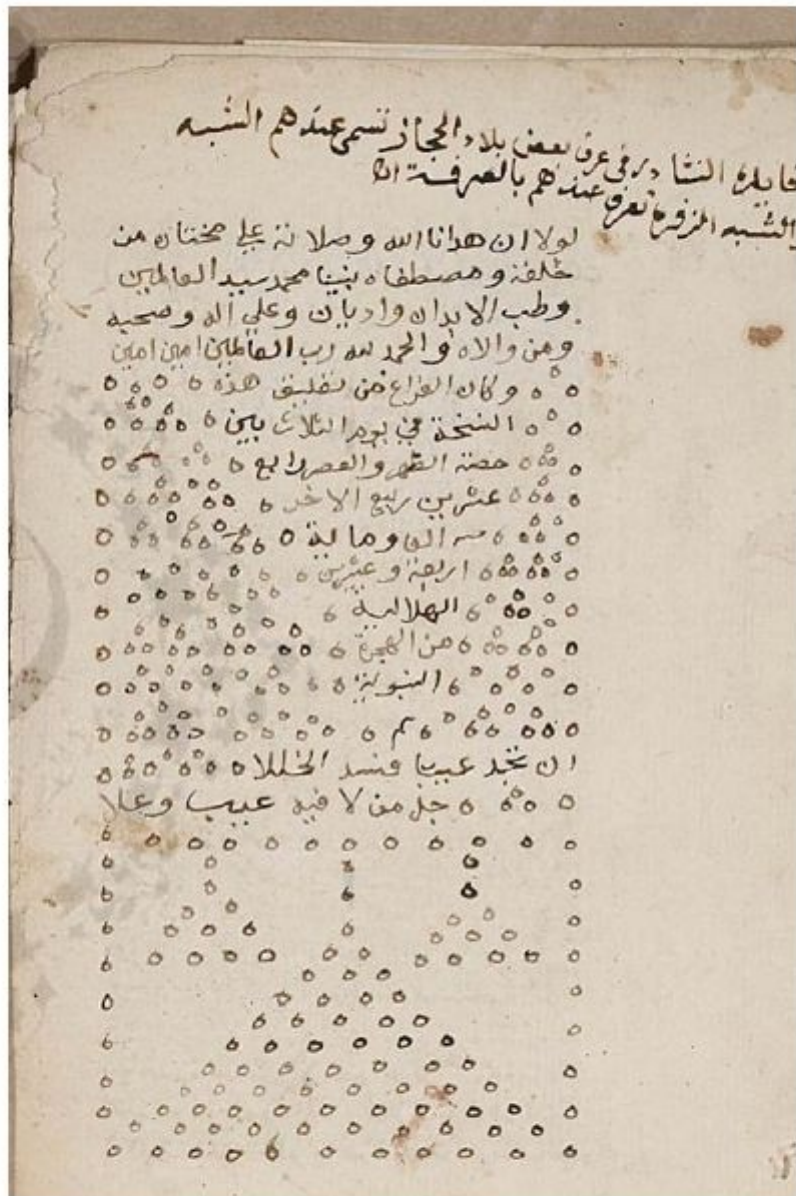 فايدة النشادر في عرف بعض بلاد الحجاز تسمى عندهم الشبه
والشبه المزفرة تعرف عندهم بالصرفة
لولا ان هدانا الله وصلاته علي مختاره من
خلقه ومصطفاه نبينا محمد سيد العالمين
وطب الابدان واديان وعلي اله وصحبه
ومن والاه والحمد لله رب العالمين امين امين
وكان الفراغ من تعليق هذه
النسخة في يوم الثلاث بين
حصة الظهر والعصر رابع
عشرين ربيع الاخر
سنه الف وماية
اربعة وعشرين
الهلالية
من الهجرة
النبوية
تم
ان تجد عيبا فسد الخللا
جل من لا فيه عيب وعلا